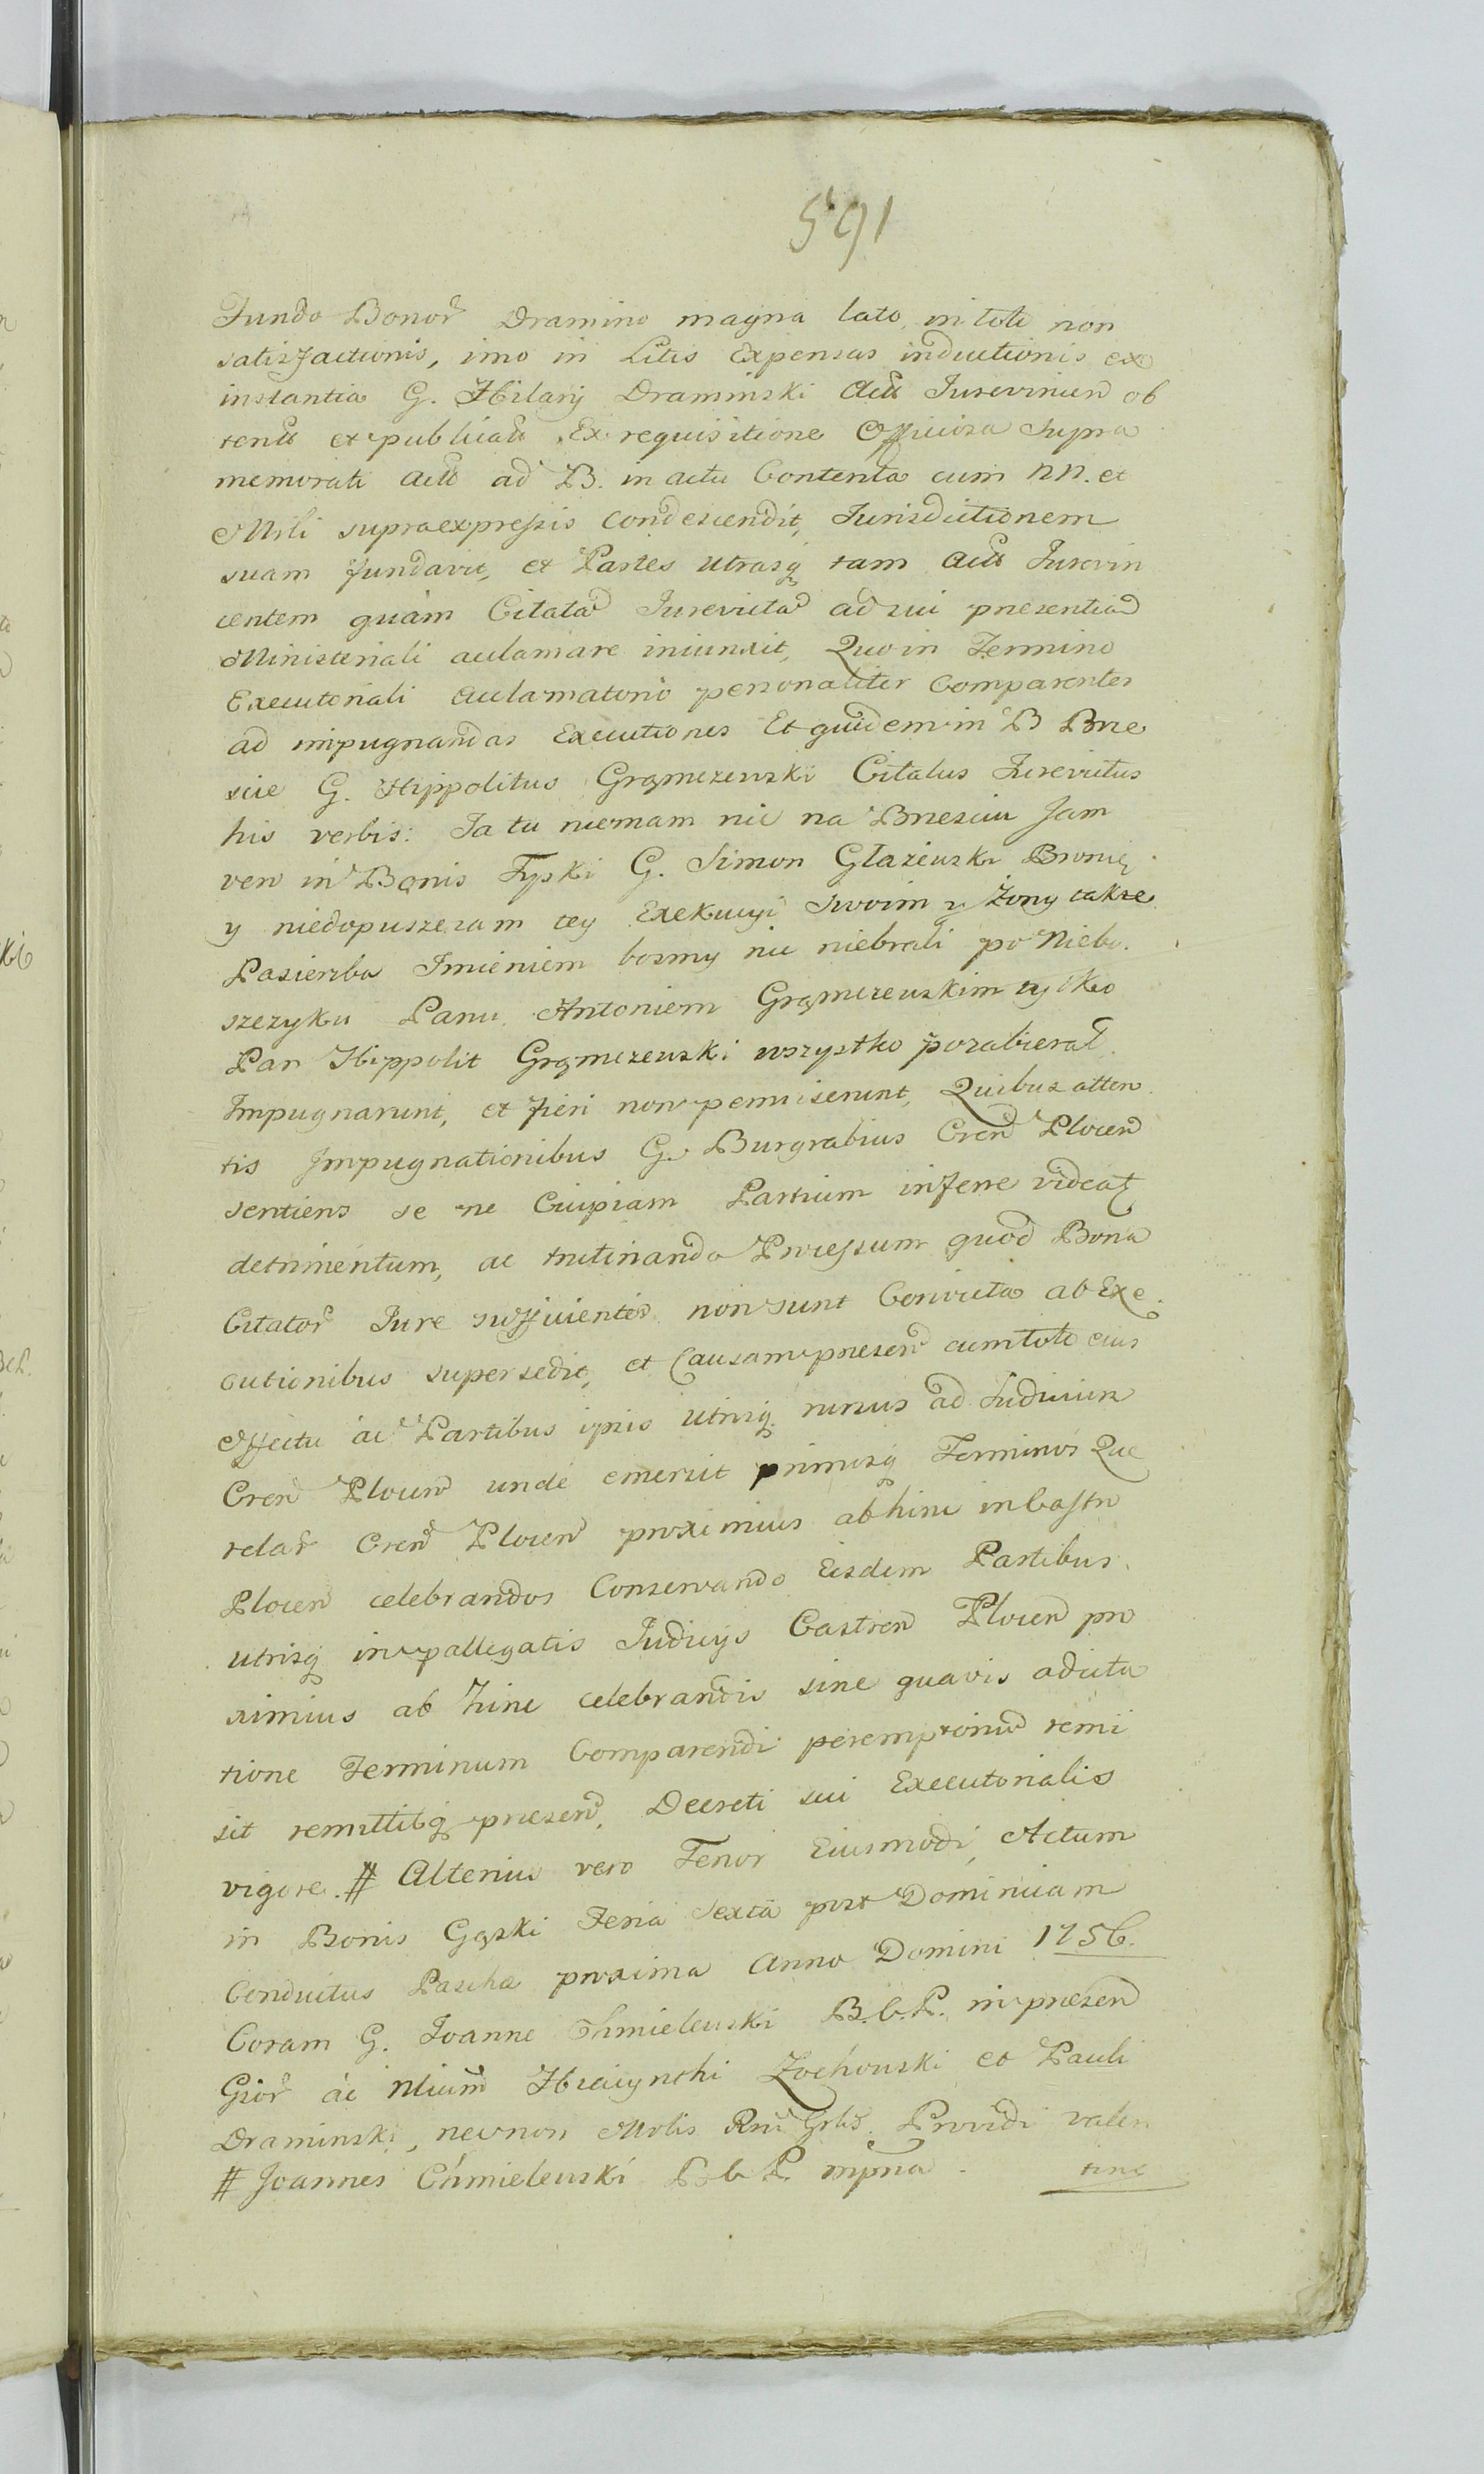 591
Fundo Bonor Dramino magna lato, in toto non
satisfactionis, imo in Litis Expensas inductionis ex
instantia G. Hilarij Draminski Act Iurevincen ob
tent et publicat. Ex requisitione Officiosa supra
memorati Act ad B. in actu Contenta cum NN. et
Mrli supraexpressis condescendit, Iurisdictionem
suam fundavit, et Partes utrasq tam Act Iurevin
centem quàm Citatã Iurevictã ad sui presentiã
Ministeriali aclamare iniunxit, Quo in Termino
Executoriali aclamatorio personaliter Comparentes
ad impugnandas Executiones Et quidem in B Brze
scie G. Hippolitus Grąmczewski Citatus Iurevictus
his verbis: Ja tu niemam nic na Brzesciu Jam
vero in Bonis Łyski G. Simon Głażewski Bronię
y niedopuszczam tey Exekucyi Swoim y Żony także
Pasierzba Imieniem bosmy nic niebrali po Niebo.
szczyku Panu Antoniem Grąmczewskim tylko
Pan Hippolit Grąmczewski wszystko pozabierał.
Impugnarunt, et fieri non permiserunt, Quibus atten
tis Impugnationibus G. Burgrabius Cren Plocen
sentiens se ne Cuipiam Partium inferre videat
detrimentum, ac trutinando Processum quod Bona
Citator Iure sufficienter non sunt Convicta ab Exe.
cutionibus supersedit, et Causam presen cum toto eius
effectu ac Partibus ipsis utrisq rursus ad Iudicium
Cren Plocen unde emersit primosq Terminos Que
relar Cren Plocen proximius abhinc in Castro
Plocen celebrandos Conservando Eisdem Partibus
utrisq in pallegatis Iudicijs Castren Plocen pro
ximius ab hinc celebrandis sine quavis adcita
tione Terminum Comparendi peremptoriũ remi
sit remittitq presen, Decreti sui Executorialis
vigore. # Alterius vero Tenor Eiusmodi, Actum
in Bonis Gąski Feria Sexta post Dominicam
Conductus Pascha proxima Anno Domini 1756.
Coram G. Joanne Chmielewski B.C.P. in presen
Gsor ac Nlium Hiacynthi Żochowski et Pauli
Draminski, necnon Mrlis Rni Grlis. Providi valen
# Joannes Chmielewski B C P mpria
tine